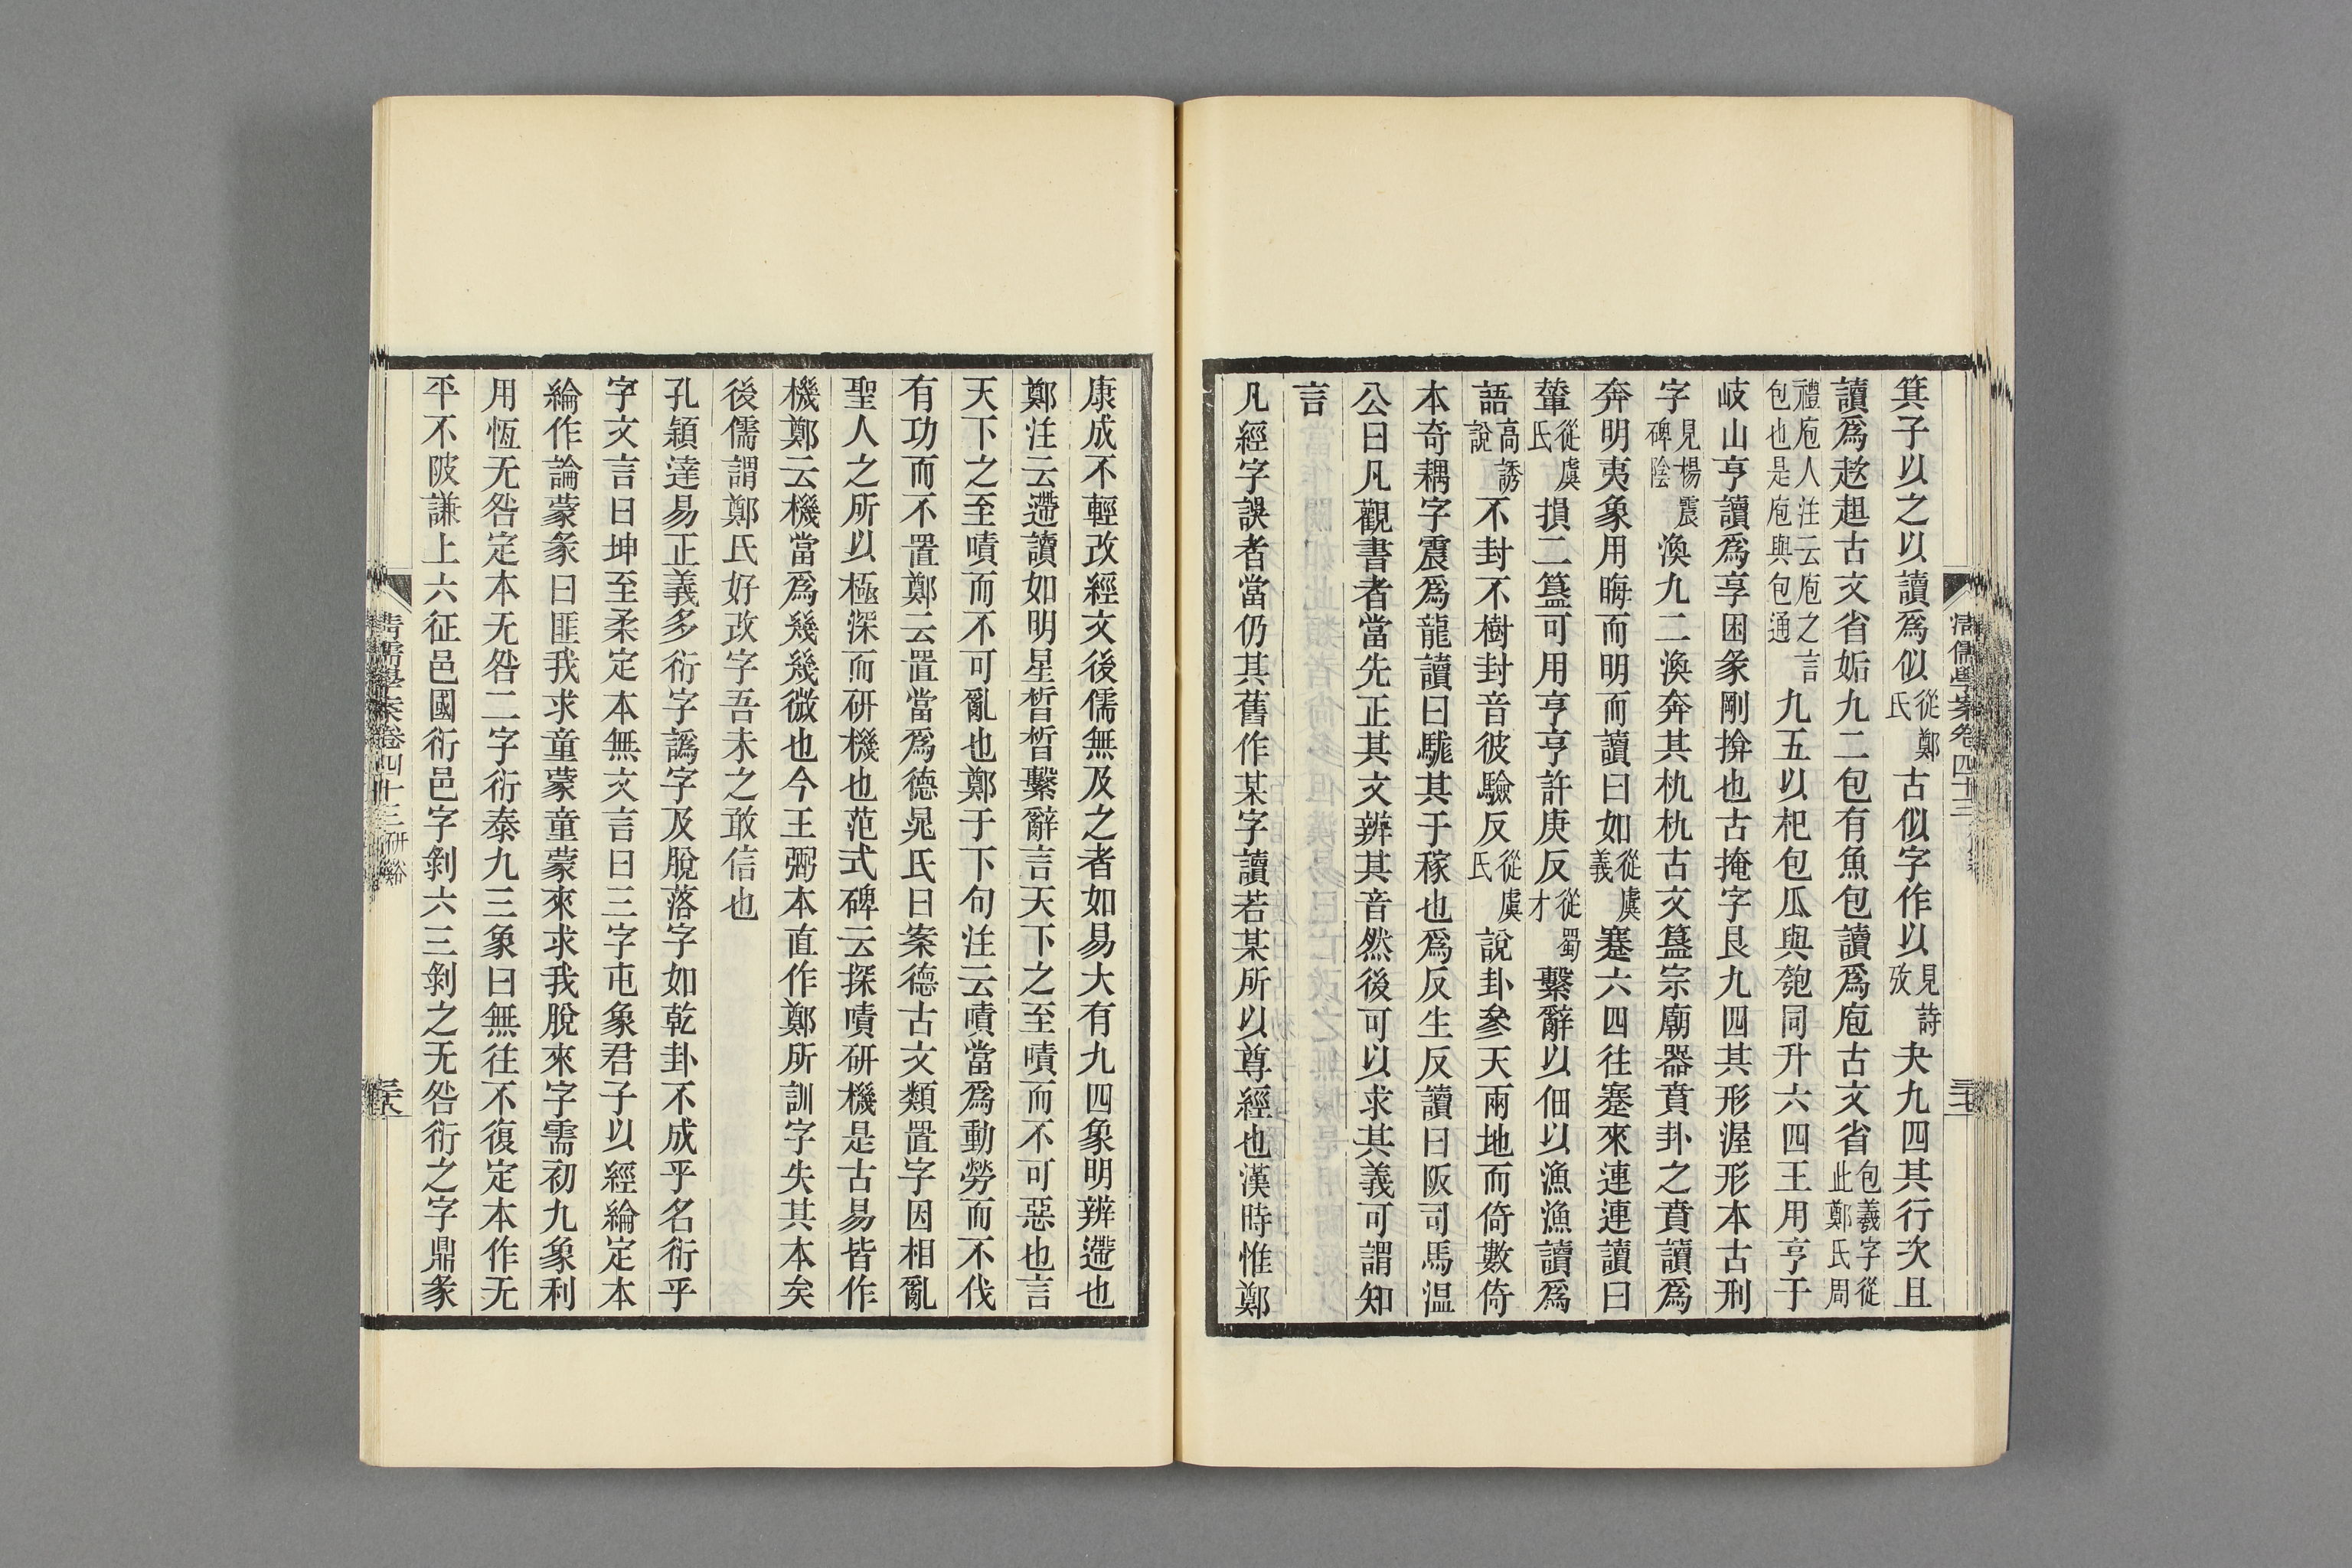 箕子以之以讀爲似從鄭氏古似字作以見詩攷夬九四其行次且
讀爲趑趄古文省姤九二包有魚包讀爲庖古文省包羲字從此鄭氏周
禮庖人注云庖之言包也是庖與包通九五以杞包瓜與匏同升六四王用亨于
岐山亨讀爲享困彖剛揜也古掩字艮九四其形渥形本古刑
字見楊震碑陰渙九二渙奔其杋杋古文簋宗廟器賁卦之賁讀爲
奔明夷象用晦而明而讀曰如從虞義蹇六四往蹇來連連讀曰
輦從虞氏損二簋可用亨亨許庚反從蜀才繫辭以佃以漁漁讀爲
語高誘說不封不樹封音彼驗反從虞氏說卦參天兩地而倚數倚
本奇耦字震爲龍讀曰駹其于稼也爲反生反讀曰阪司馬温
公曰凡觀書者當先正其文辨其音然後可以求其義可謂知
言
凡經字誤者當仍其舊作某字讀若某所以尊經也漢時惟鄭
清儒學案卷四十三
三七
康成不輕改經文後儒無及之者如易大有九四象明辨遰也
鄭注云遰讀如明星晢晢繫辭言天下之至嘖而不可惡也言
天下之至嘖而不可亂也鄭于下句注云嘖當爲動勞而不伐
有功而不置鄭云置當爲德晁氏曰案德古文類置字因相亂
聖人之所以極深而研機也范式碑云探嘖研機是古易皆作
機鄭云機當爲幾幾微也今王弼本直作鄭所訓字失其本矣
後儒謂鄭氏好改字吾未之敢信也
孔穎達易正義多衍字譌字及脫落字如乾卦不成乎名衍乎
字文言曰坤至柔定本無文言曰三字屯象君子以經綸定本
綸作論蒙彖曰匪我求童蒙童蒙來求我脫來字需初九象利
用恆无咎定本无咎二字衍泰九三象曰無往不復定本作无
平不陂謙上六征邑國衍邑字剝六三剝之无咎衍之字鼎彖
清儒學案卷四十三 研谿
三六